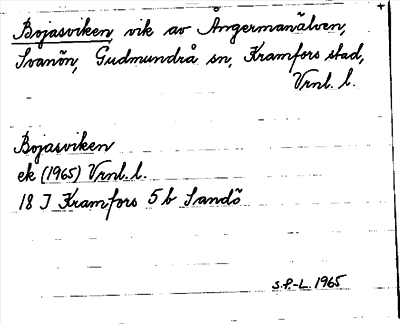 Bojasviken, vik av Ångermanälven,
Svanön, Gudmundrå sn, Kramfors stad,
Vrnl. l.
Bojasviken
ek (1965) Vrnl. l.
18 J Kramfors 5 b Sandö
S.P.-L. 1965